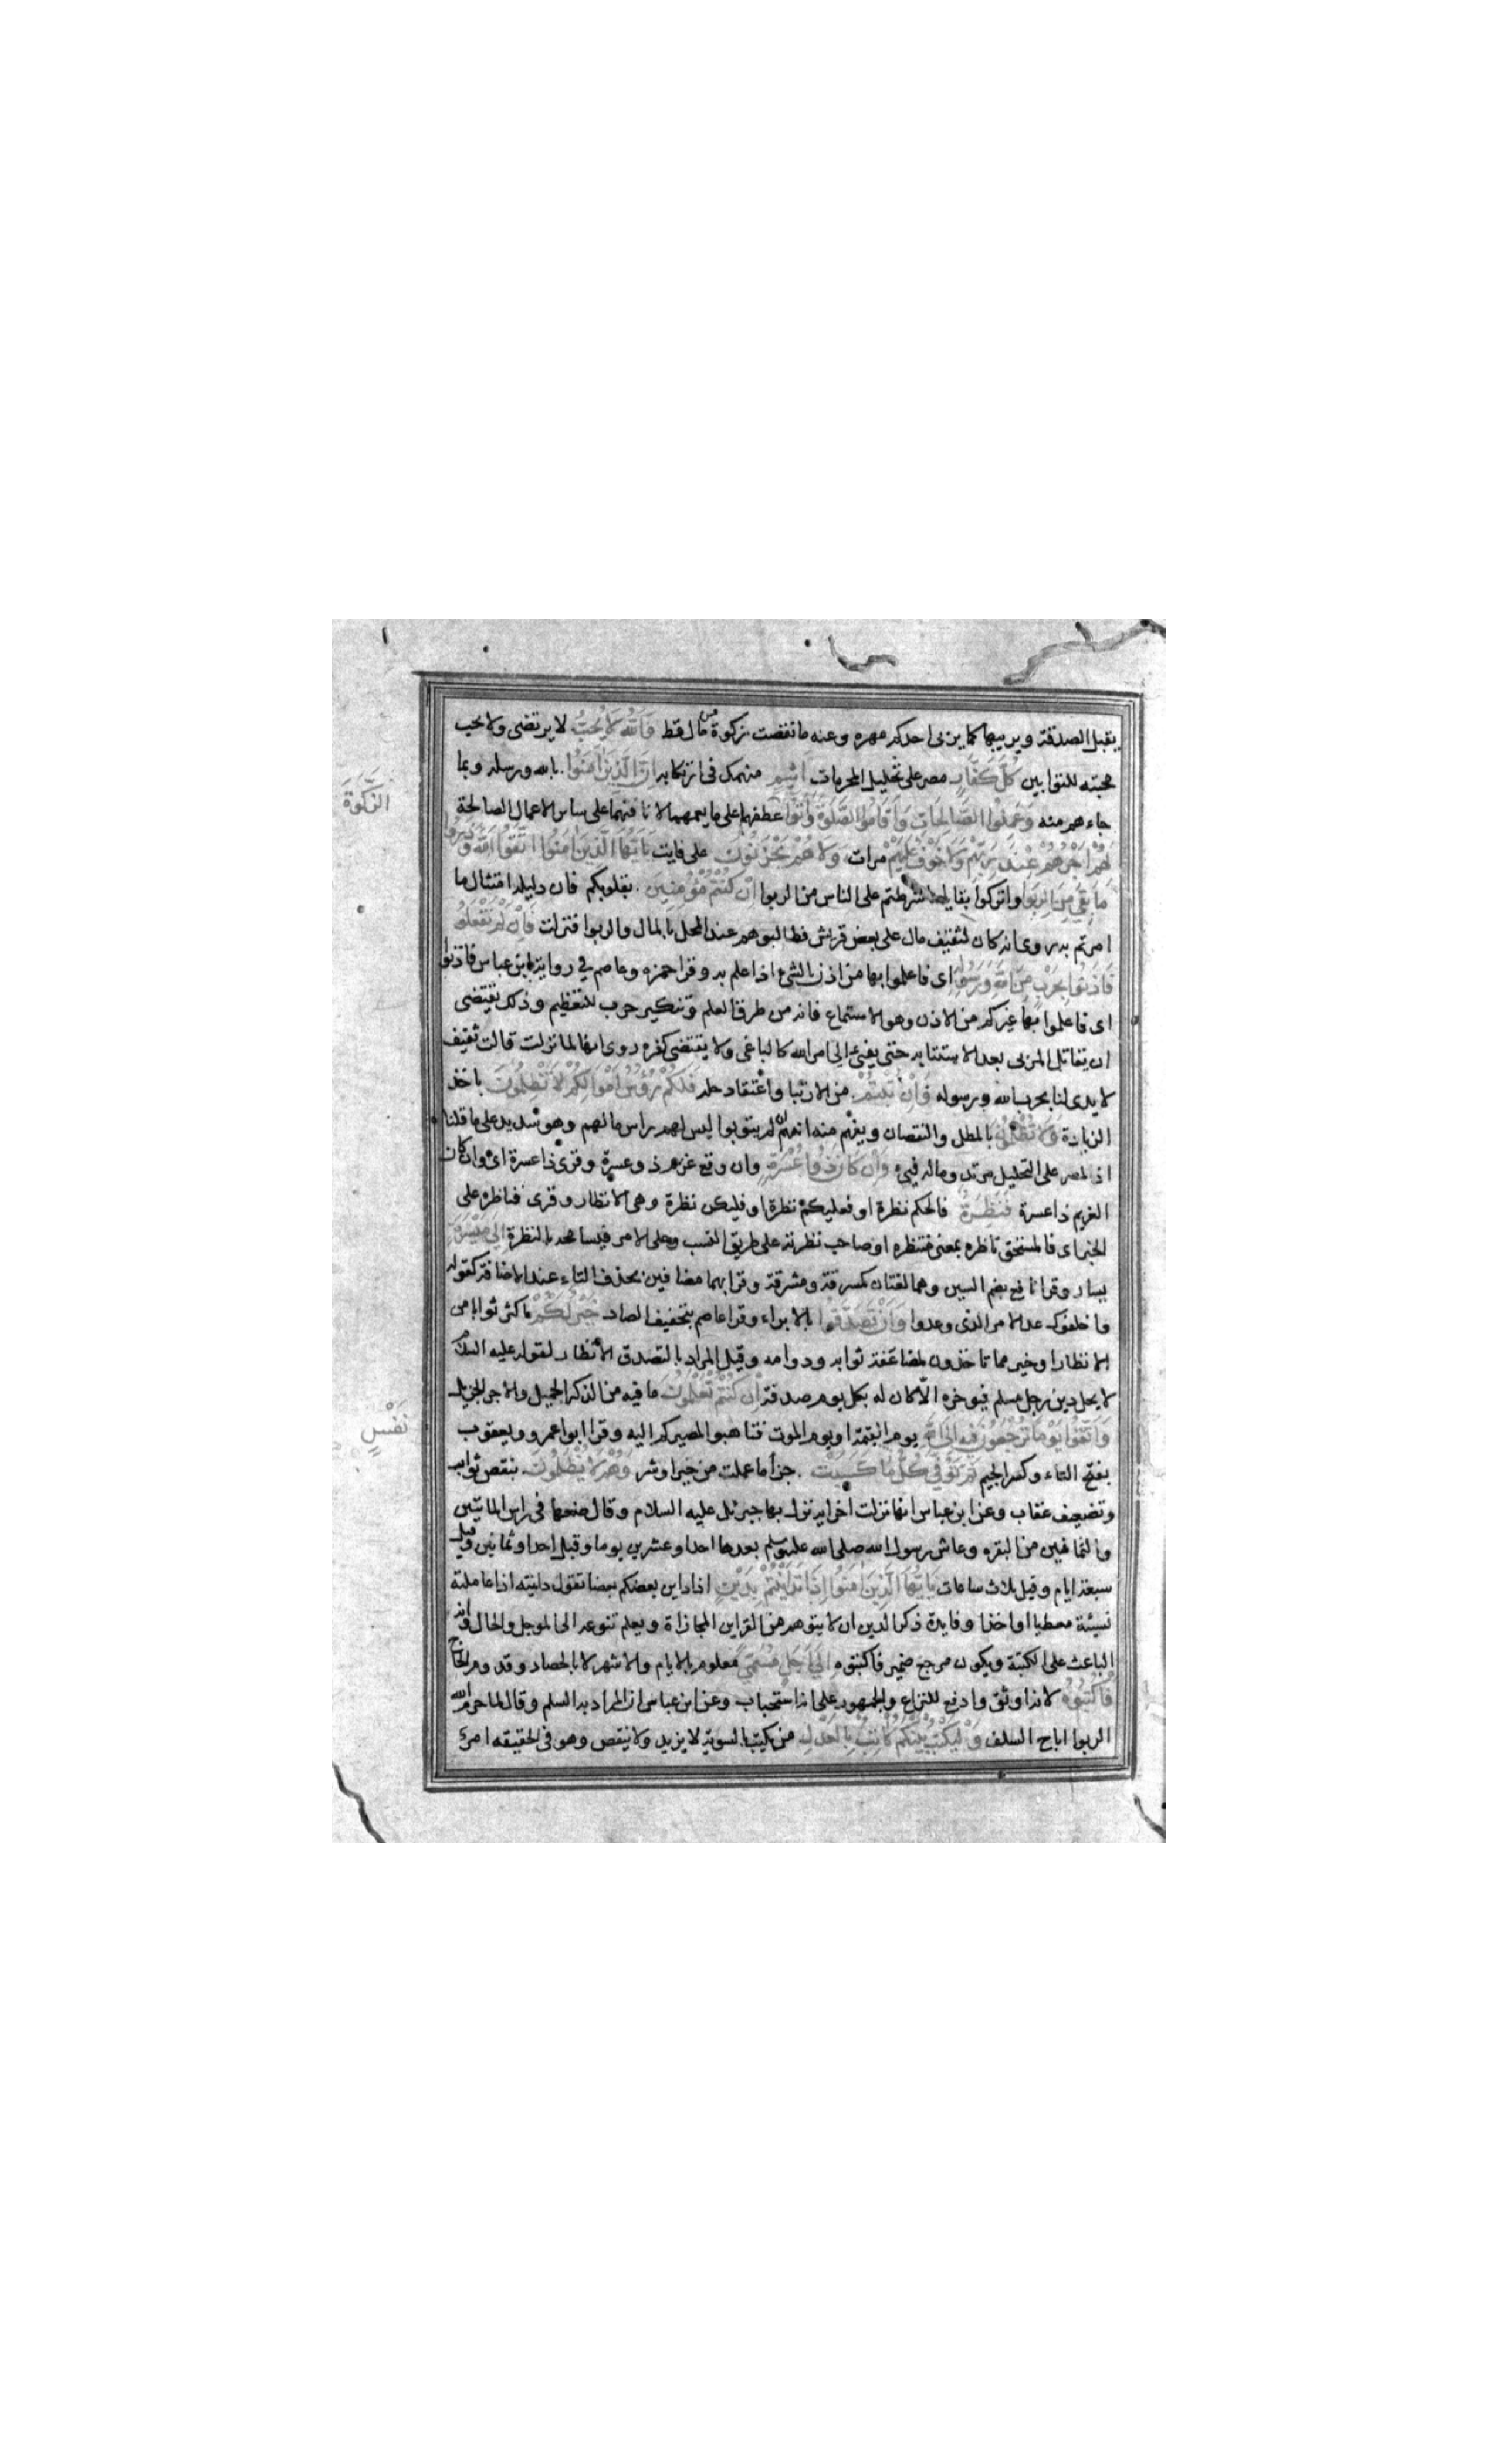 يقبل الصدقة ويربيها كما يربى احدكم مهره وعنه ما نقصت زكوة من مال قط والله لا يحب لا يرتضى ولا يحب
محبته للتوابين كل كفار مصر على تحليل المحرمات اثيم منهمك فى ارتكابه ان الذين امنوا بالله ورسله وبما
جاءهم منه وعملوا الصالحات واقاموا الصلوة واتوا عطفهما على ما يعمهما لانافتهما على سائر الاعمال الصالحة
الزكوة
لهم اجرهم عند ربهم ولا خوف عليهم من ات ولا هم يحزنون على فايت يا ايها الذين امنوا اتقوا الله وذروا
ما بقي من الربوا واتركوا بقايا ما شرطتم على الناس من الربوا ان كنتم مؤمنين بقلوبكم فان دليله امتثال ما
امرتم به روى انه كان لثقيف مال على بعض قريش فطالبوهم عند المحل بالمال والربوا فنزلت فان لم تفعلوا
فاذنوا بحرب من الله ورسوله اى فاعلموا بها من اذن الشئ اذا علم به وقرا حمزه وعاصم في رواية ابن عباس فاذنوا
اى فاعلموا بها غيركم من الاذن وهو الاستماع فانه من طرق العلم وتنكير حرب للتعظيم وذلك يقتضى
ان يقاتل المربى بعد الاستتابه حتى يفئ الى امر الله كالباغى ولا يقتضى كفره روى انها لما نزلت قالت ثقيف
لا يدى لنا بحرب الله ورسوله وان تبتم من الارتبا واعتقاد حله فلكم رؤس اموالكم لا تظلمون باخذ
الزيادة ولا تظلمون بالمطل والنقصان ويفهم منه انهم ان لم يتوبوا ليس لهم راس مالهم وهو سديد على ما قلنا
اذ المصر على التحليل مرتد وماله فيئ وان كان ذو عسرة وان وقع غريم ذو عسرة وقرئ ذا عسرة اى وان كان
الغريم ذا عسرة فنظرة فالحكم نظرة او فعليكم نظرة او فليكن نظرة وهى الانظار وقرى فناظره على
الخبر اى فالمستحق ناظره بمعنى منتظره او صاحب نظرته على طريق النسب وعلى الامر فيسامحه بالنظرة الى ميسرة
يسار وقرا نافع بضم السين وهما لغتان كمسرقة ومشرقة وقرا بهما مضافين بحذف التاء عند الاضافة كقوله
واخلفوك عد الامر الذى وعدوا وان تصدقوا بالابراء وقرا عاصم بتخفيف الصاد خير لكم اكثر ثوابا من
الانظار او خير مما تاخذون لمضاعفة ثوابه ودوامه وقيل المراد بالتصدق الانظار لقوله عليه السلم
لا يحل دين رجل مسلم فيؤخره الا كان له بكل يوم صدقة ان كنتم تعلمون ما فيه من الذكر الجميل والاجر الجزيل
واتقوا يوما ترجعون فيه الى الله يوم القيمة او يوم الموت فتاهبوا لمصيركم اليه وقرا ابو عمرو ويعقوب
نفس
بفتح التاء وكسر الجيم ثم توفي كل ما كسبت جزا ما عملت من خير او شر وهم لا يظلمون بنقص ثواب
وتضعيف عقاب وعن ابن عباس انها نزلت اخر اية نزل بها جبرئل عليه السلام وقال ضعها فى راس المائتين
والثمانين من البقره وعاش رسول الله صلى الله عليه وسلم بعدها احدا وعشرين يوما وقيل احدا وثمانين وقيل
سبعة ايام وقيل ثلاث ساعات يا ايها الذين امنوا اذا تداينتم بدين اذا داين بعضكم بعضا تقول داينته اذا عاملته
نسيئة معطيا او اخذا وفايدة ذكر الدين ان لا يتوهم من التداين المجازاة ويعلم تنوعه الى الموجل والحال وانه
الباعث على الكتبة ويكون مرجع ضمير فاكتبوه الى اجل مسمى معلوم بالايام والاشهر لا بالحصاد وقدوم الحاج
فاكتبوه لانه اوثق وادفع للنزاع والجمهور على انه استحباب وعن ابن عباس ان المراد به السلم وقال لما حرم الله
الربوا اباح السلف وليكتب بينكم كاتب بالعدل من يكتب بالسوية لا يزيد ولا ينقص وهو فى الحقيقه امر